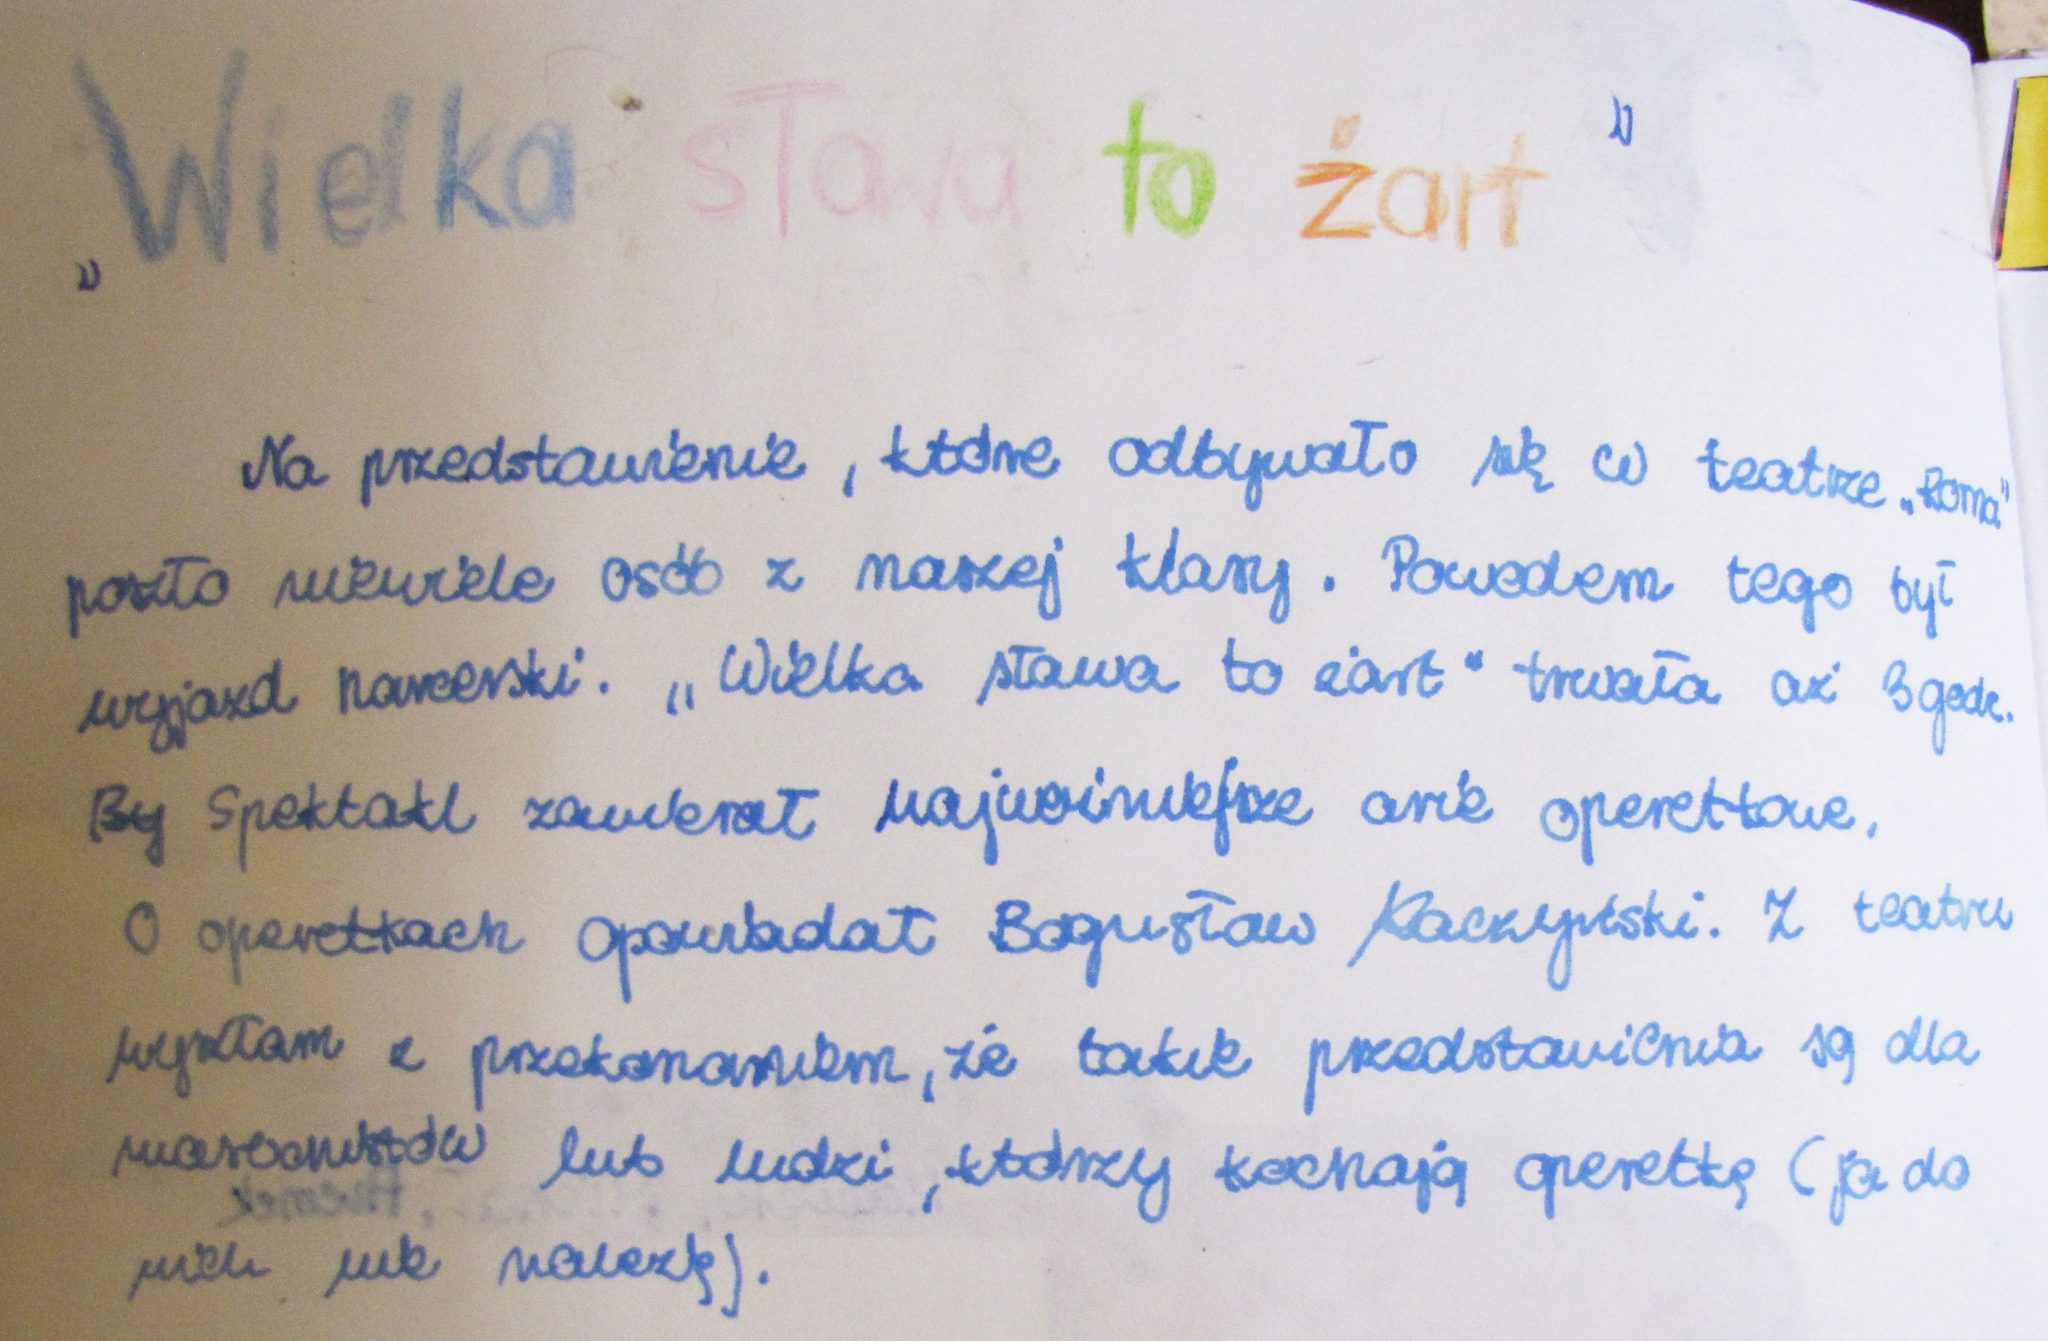 „Wielka sława to żart”
Na przedstawienie, które odbywało się w teatrze „Roma”
poszło niewiele osób z naszej klasy. Powodem tego był
wyjazd harcerski. „Wielka sława to żart” trwała aż 3 godz.
By Spektakl zawierał najważniejsze arie operettowe.
O operetkach opowiadał Bogusław Kaczyński. Z teatru
wyszłam z przekonaniem, że takie przedstawienia są dla
masochistów lub ludzi, którzy kochają operetkę (ja do
nich nie należę).